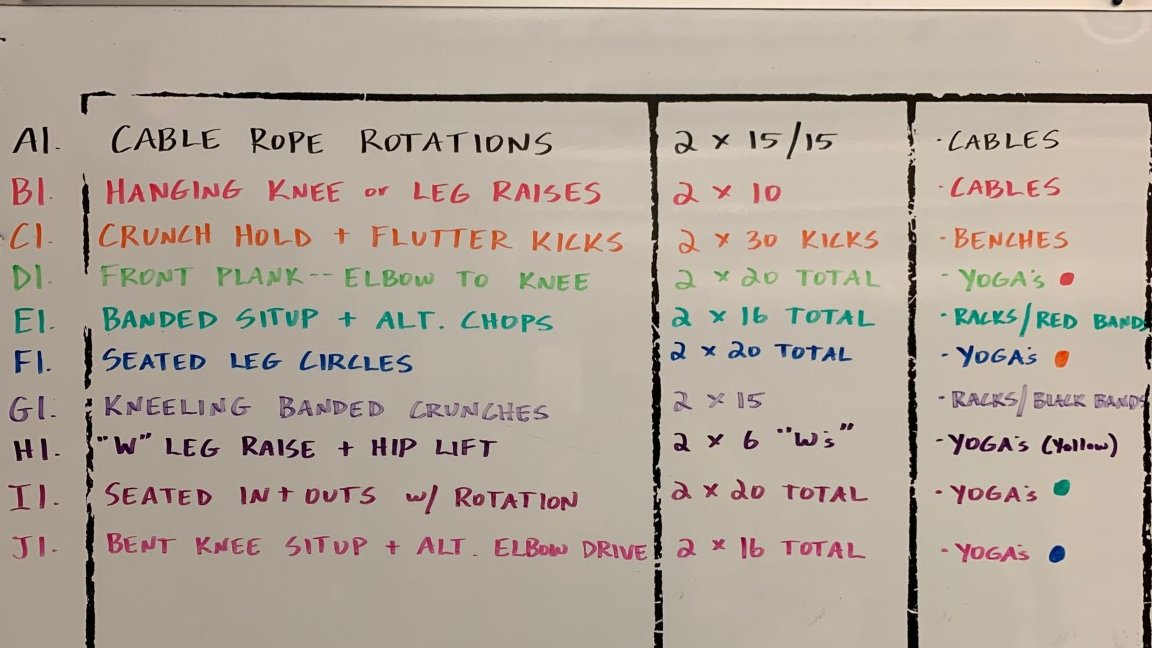 A1. CABLE ROPE ROTATIONS 2 x 15/15 · CABLES
B1. HANGING KNEE or LEG RAISES 2 x 10 · CABLES
C1. CRUNCH HOLD + FLUTTER KICKS 2 x 30 KICKS · BENCHES
D1. FRONT PLANK -- ELBOW TO KNEE 2 x 20 TOTAL · YOGA's
E1. BANDED SITUP + ALT. CHOPS 2 x 16 TOTAL · RACKS/RED BANDS
F1. SEATED LEG CIRCLES 2 x 20 TOTAL · YOGA's
G1. KNEELING BANDED CRUNCHES 2 x 15 · RACKS/BLACK BANDS
H1. "W" LEG RAISE + HIP LIFT 2 x 6 "W's" · YOGA's (Yollow)
I1. SEATED IN + OUTS w/ ROTATION 2 x 20 TOTAL · YOGA's
J1. BENT KNEE SITUP + ALT. ELBOW DRIVE 2 x 16 TOTAL · YOGA's